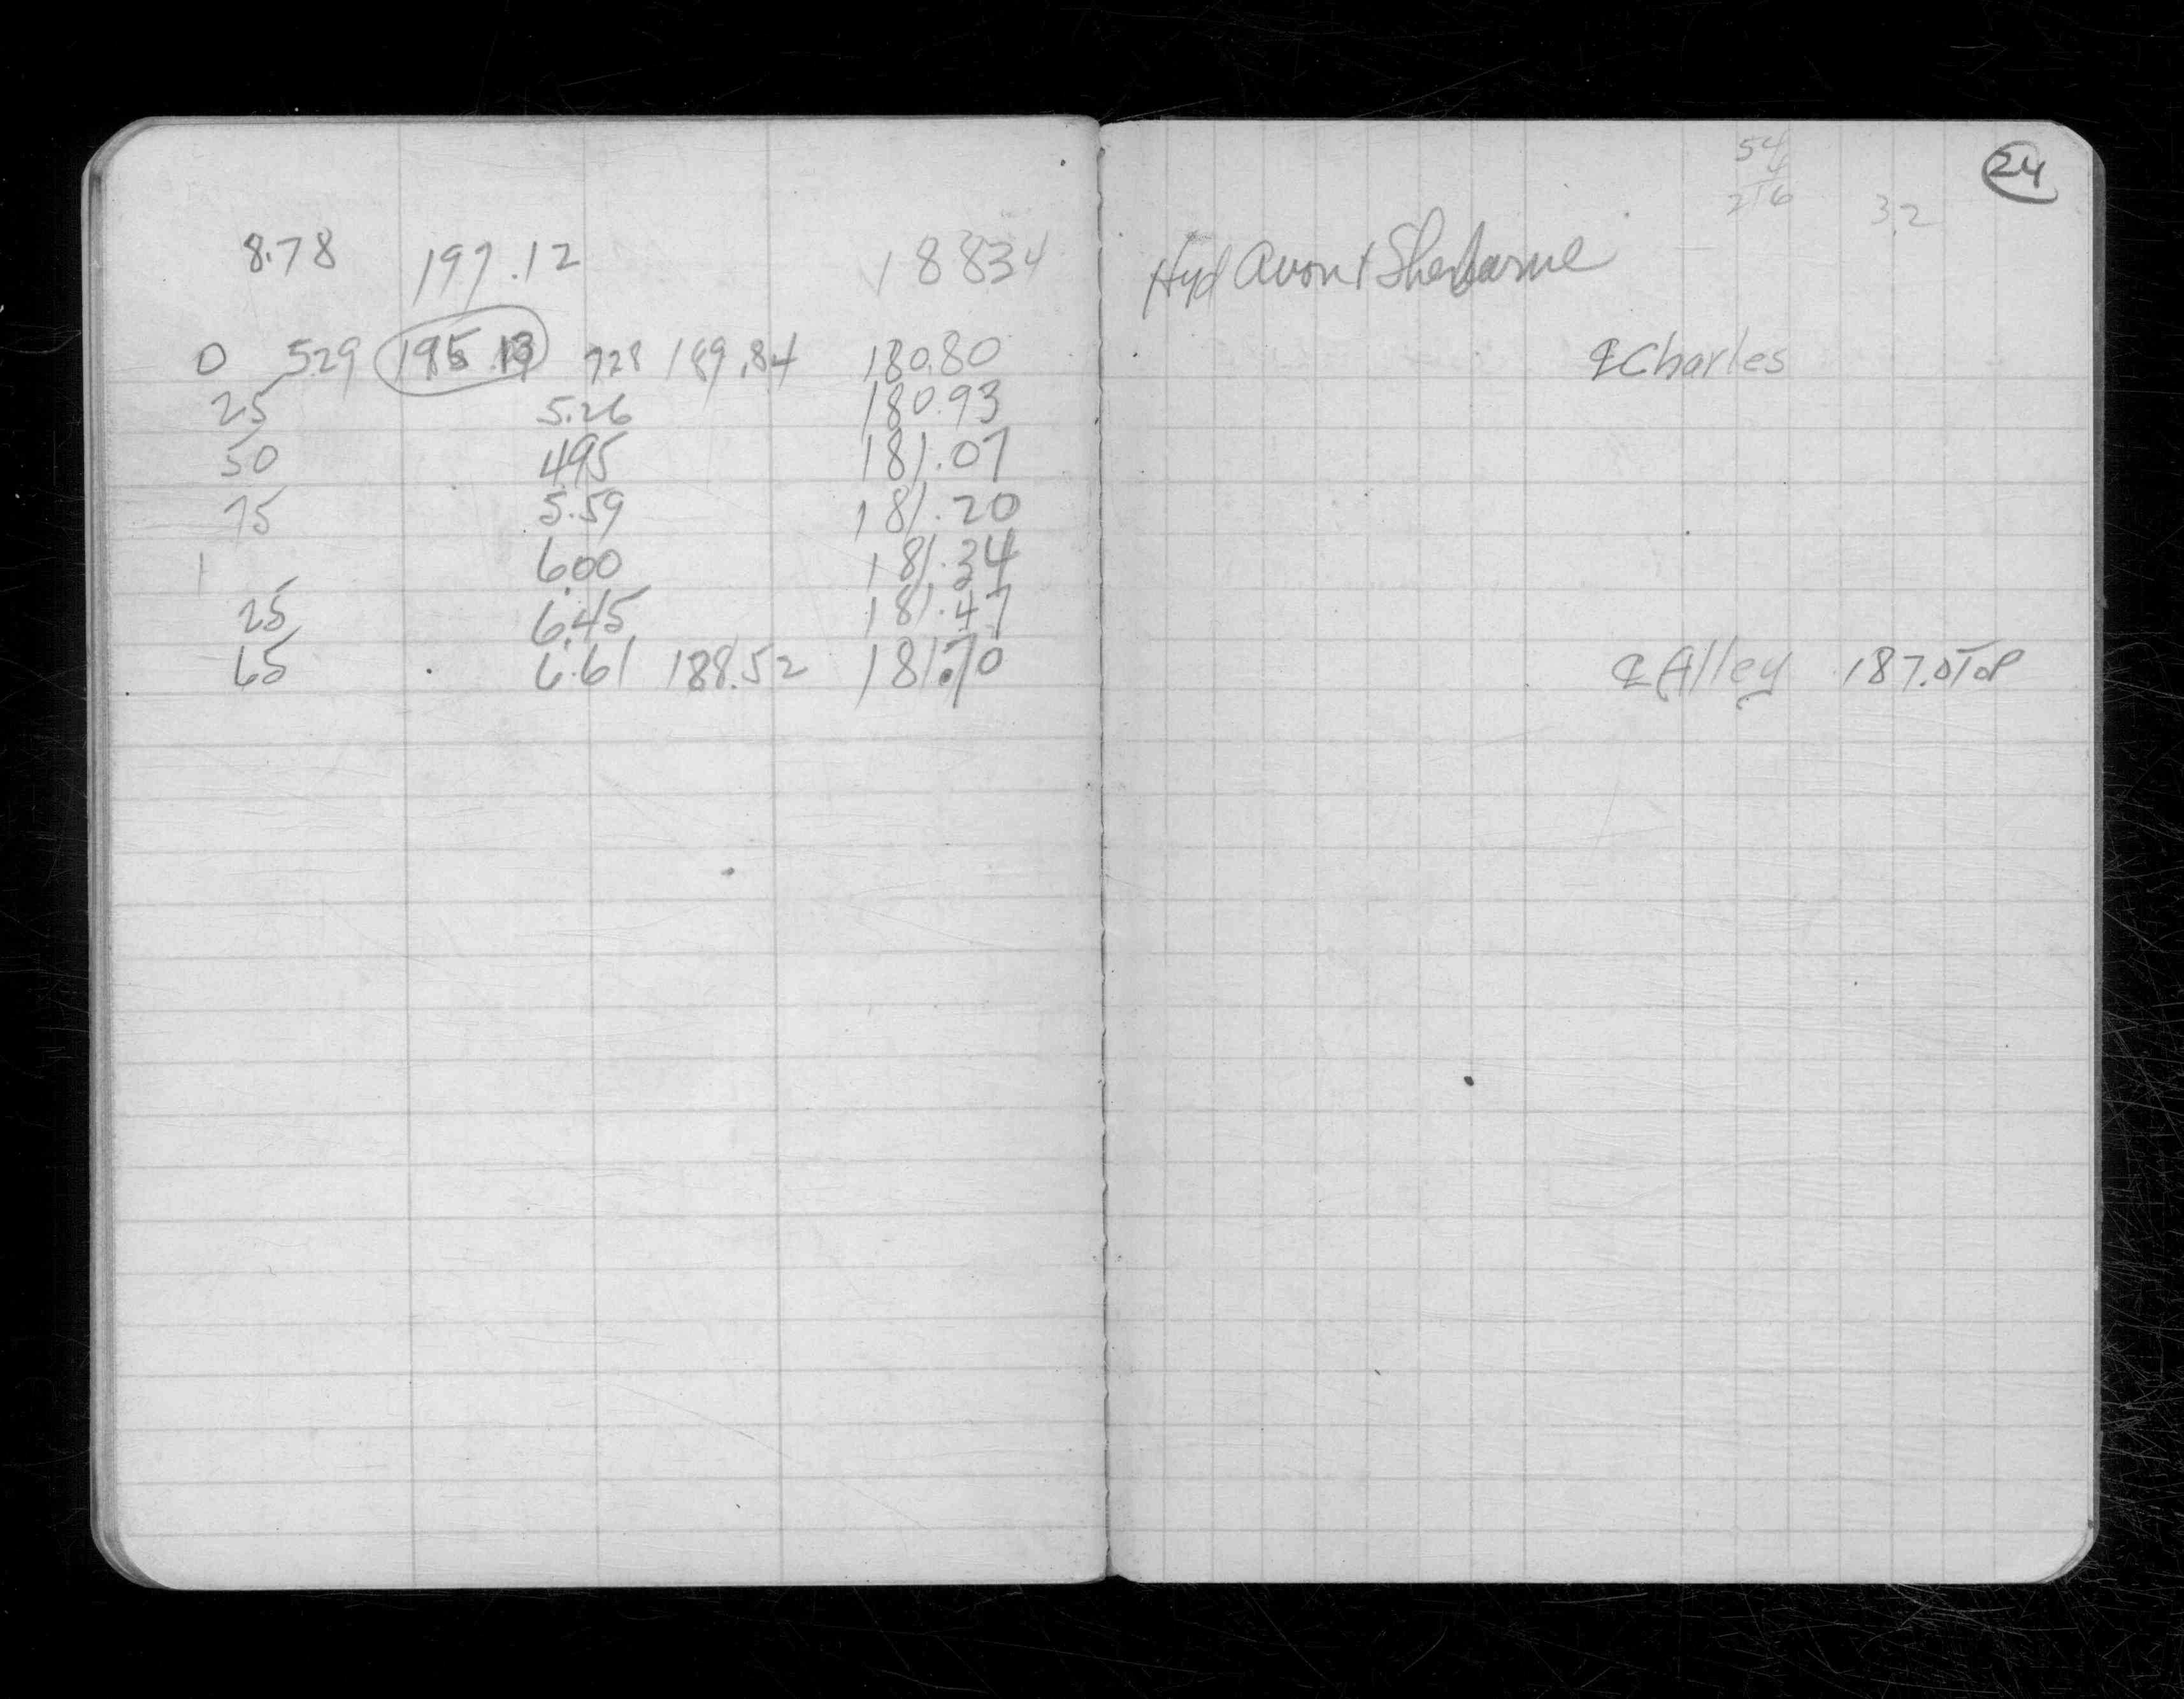 8.78 197.12 18834
0 529 195.13 728 189.84 180.80
25 5.26 180.93
50 495 181.07
75 5.59 181.20
1 6.00 181.34
25 6.45 181.47
65 6.61 188.52 181.70
54
216
32
24
Hyd Avon & Sherburne
℄ Charles
℄ Alley 187.0 Top